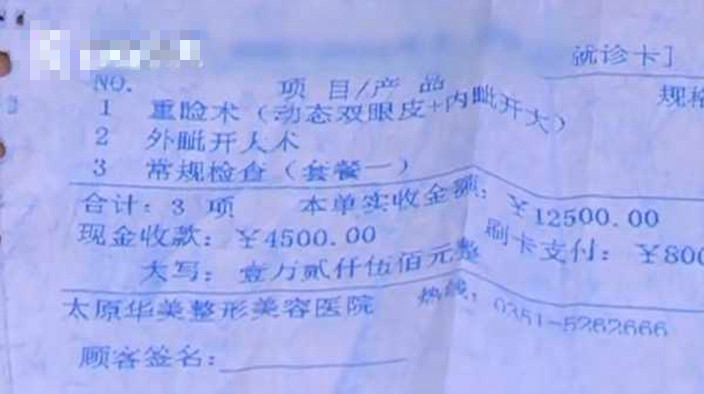 就诊卡
NO. 项目/产品 规格
1 重睑术（动态双眼皮+内眦开大）
2 外眦开大术
3 常规检查（套餐一）
合计：3 项 本单实收金额：￥12500.00
现金收款：￥4500.00 刷卡支付：￥800
大写：壹万贰仟伍佰元整
太原华美整形美容医院 热线：0351-5262666
顾客签名：